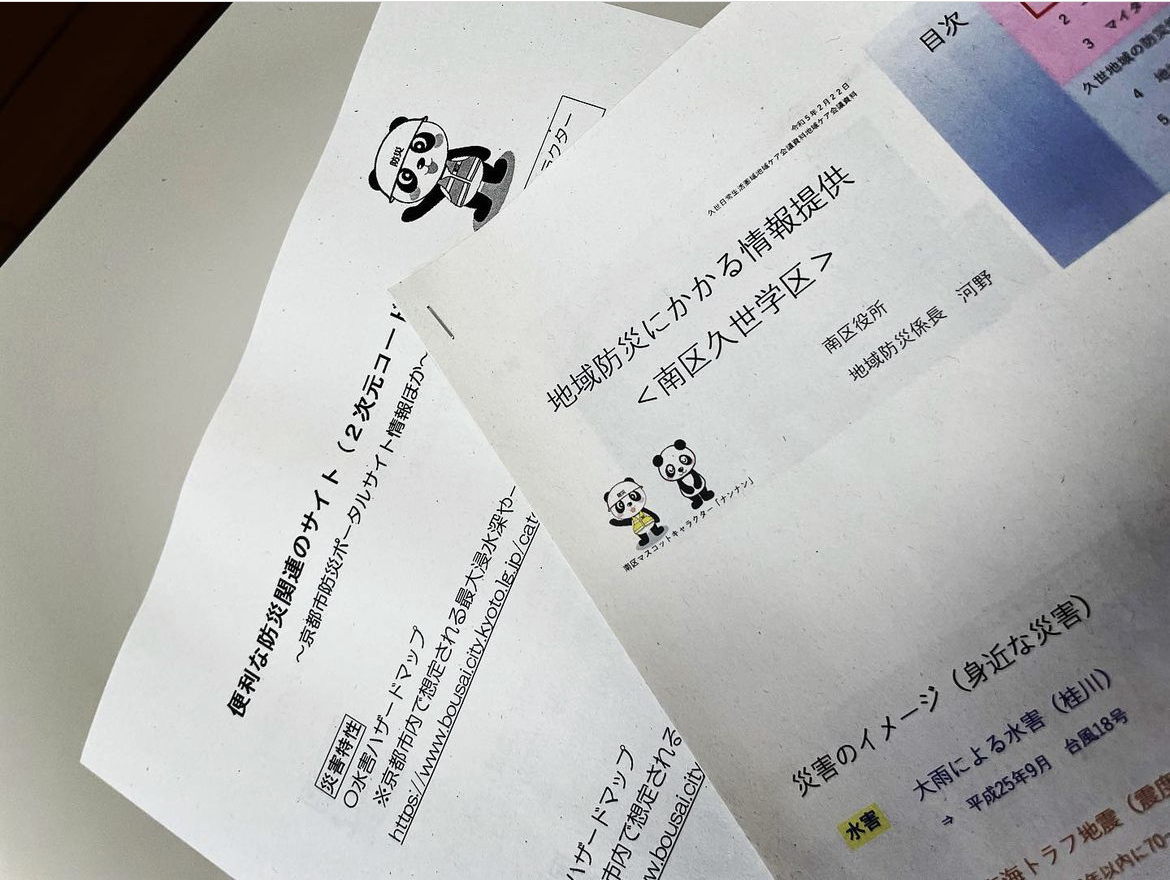 防災
ラクター
便利な防災関連のサイト（２次元コード
～京都市防災ポータルサイト情報ほか～
災害特性
〇水害ハザードマップ
※京都市内で想定される最大浸水深や
https://www.bousai.city.kyoto.lg.jp/cat
ハザードマップ
市内で想定される
ww.bousai.city
令和５年２月２２日
久世日常生活圏域地域ケア会議資料地域ケア会議資料
地域防災にかかる情報提供
＜南区久世学区＞
南区役所
地域防災係長　河野
南区マスコットキャラクター「ナンナン」
目次
2
3 マイタ
久世地域の防災
4 地
5
災害のイメージ（身近な災害）
水害
大雨による水害（桂川）
⇒ 平成25年9月 台風18号
海トラフ地震（震度
年以内に70